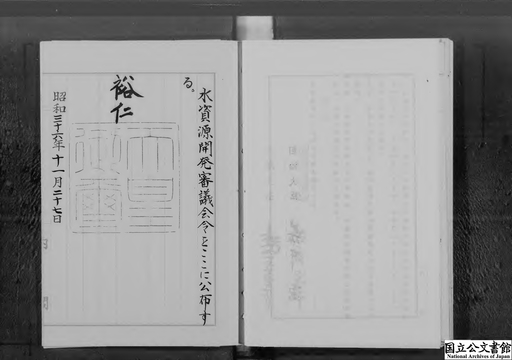 水資源開発審議会令をここに公布す
る。
裕仁
天皇
御璽
昭和三十六年十一月二十七日
国立公文書館
National Archives of Japan